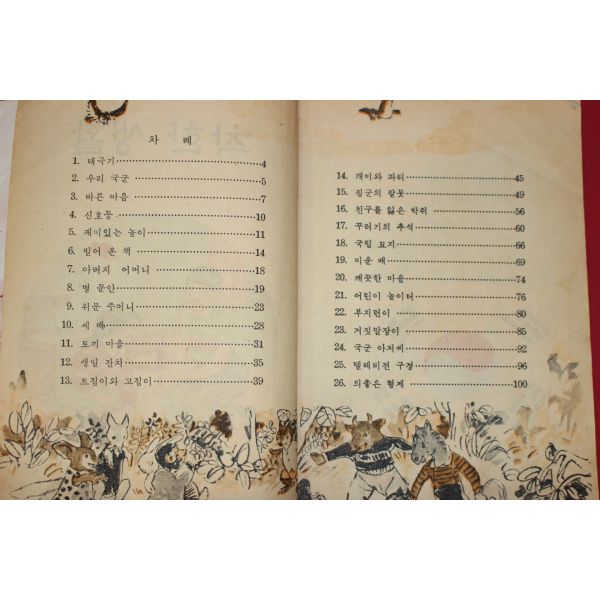 차 례
1. 태극기 4
2. 우리 국군 5
3. 바른 마음 7
4. 신호등 10
5. 재미있는 놀이 11
6. 빌어 온 책 14
7. 아버지 어머니 18
8. 병 문안 19
9. 위문 주머니 23
10. 세 배 28
11. 토끼 마음 31
12. 생일 잔치 35
13. 트집이와 고집이 39
14. 개미와 파리 45
15. 짐군의 잘못 49
16. 친구를 잃은 박쥐 56
17. 꾸러기의 추석 60
18. 국립 묘지 66
19. 미운 배 69
20. 깨끗한 마을 74
21. 어린이 놀이터 76
22. 부지런이 80
23. 거짓말장이 85
24. 국군 아저씨 92
25. 텔레비전 구경 96
26. 의좋은 형제 100